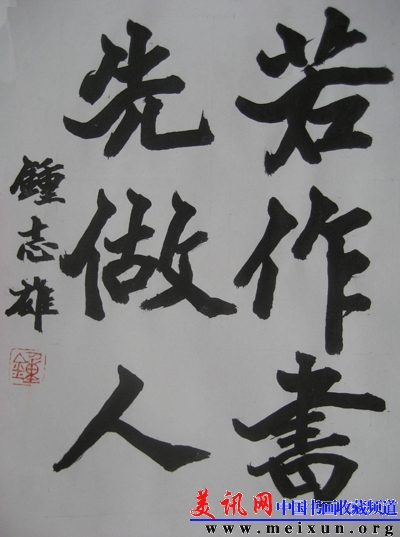 若作书
先做人
鍾志雄
鍾
美讯网 中国书画收藏频道
www.meixun.org